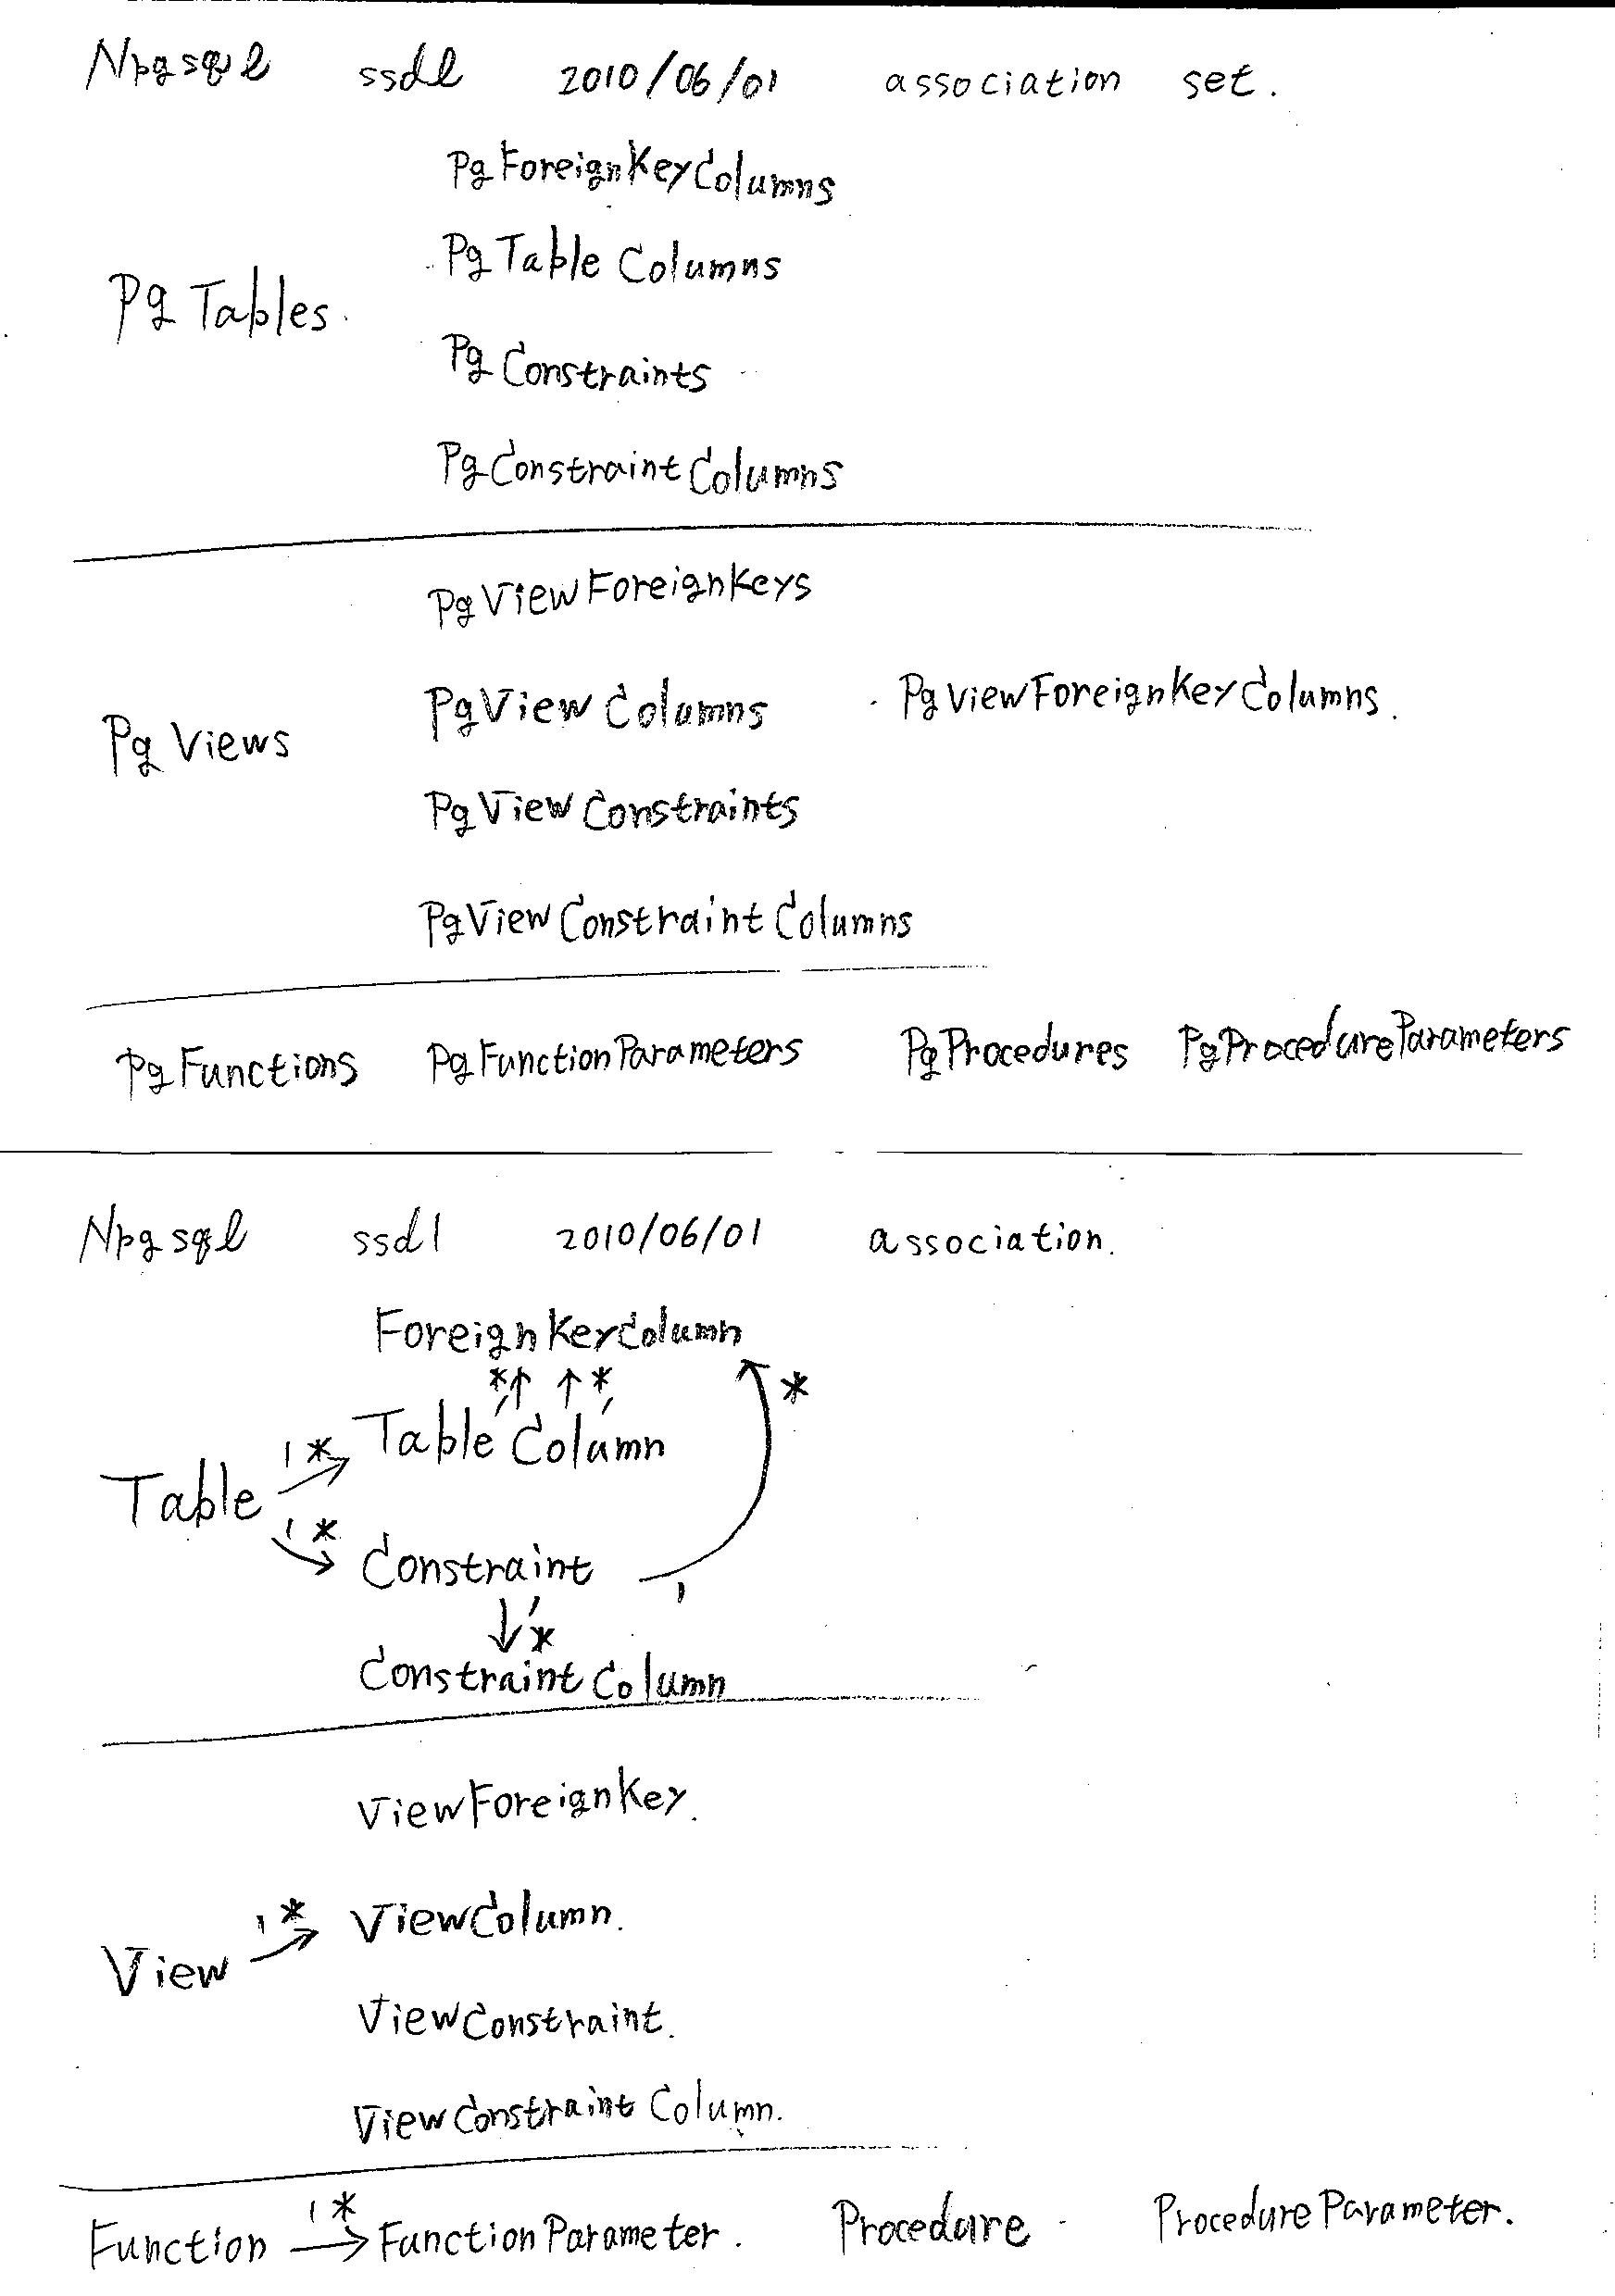 Npgsql ssdl 2010/06/01 association set.
PgForeignKeyColumns
PgTableColumns
PgTables.
PgConstraints
PgConstraintColumns
PgViewForeignKeys
PgViewColumns PgViewForeignKeyColumns.
PgViews
PgViewConstraints
PgViewConstraintColumns
PgFunctions PgFunctionParameters PgProcedures PgProcedureParameters
Npgsql ssdl 2010/06/01 association.
ForeignKeyColumn
*, ↑ ↑ *, *
TableColumn
1 *
Table
1 *
Constraint 1
↓ 1 *
ConstraintColumn
ViewForeignKey.
1 * ViewColumn.
View
ViewConstraint.
ViewConstraintColumn.
1 *
Function → FunctionParameter. Procedure ProcedureParameter.